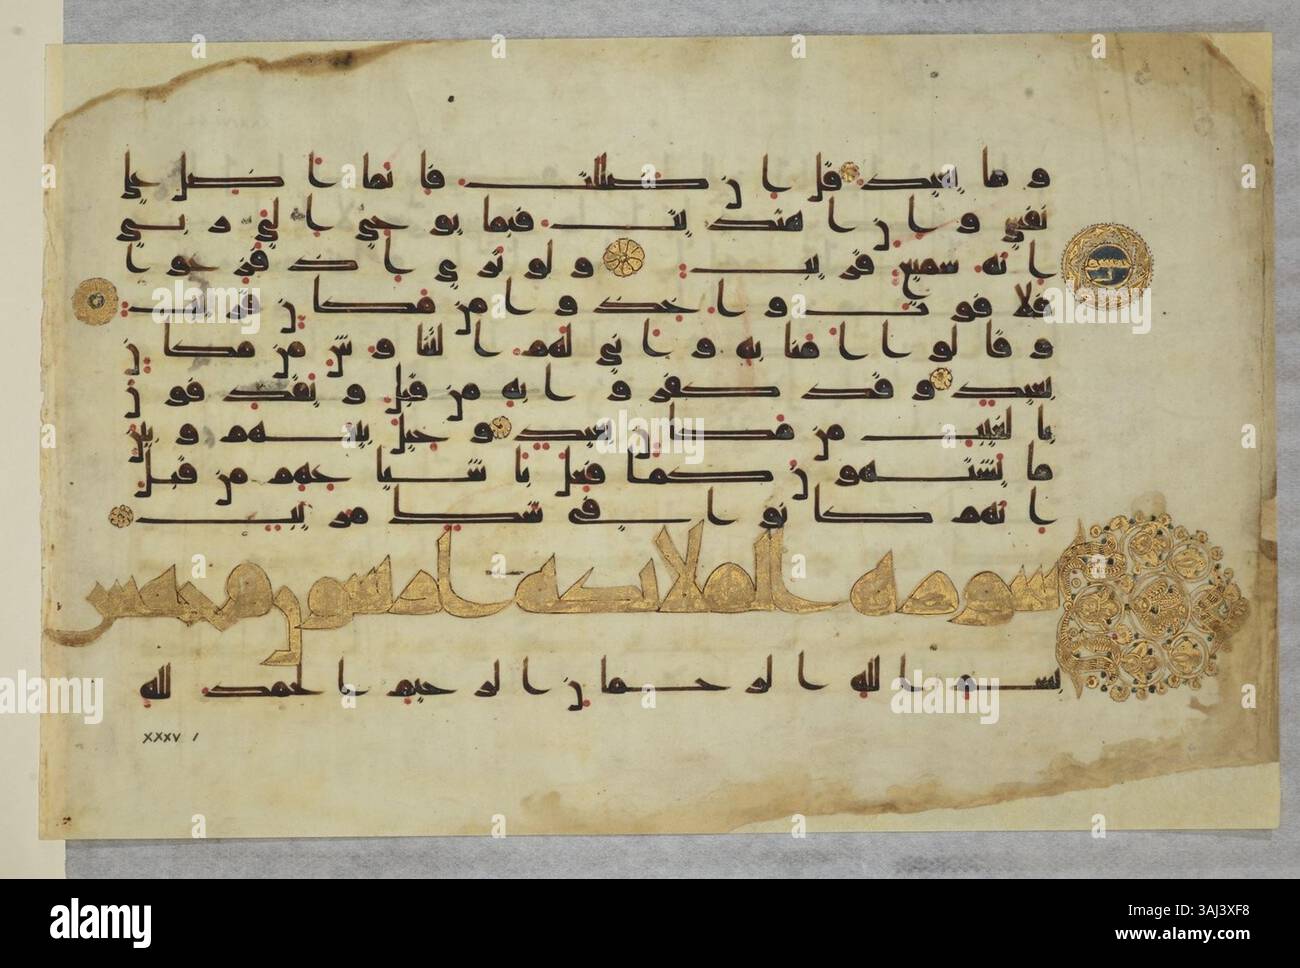 وما يعيد قل ان ضللت فانما اضل على
نفسي وان اهتديت فبما يوحي الي ربي
انه سميع قريب ولو ترى اذ فزعوا
فلا فوت واخذوا من مكان قريب
وقالوا امنا به وانى لهم التناوش من مكان
بعيد وقد كفروا به من قبل ويقذفون
بالغيب من مكان بعيد وحيل بينهم وبين
ما يشتهون كما فعل باشيعهم من قبل
انهم كانوا في شك مريب
سورة الملائكة اربعون وخمس
بسم الله الرحمن الرحيم الحمد لله
XXXV 1
alamy
Image ID: 3AJ3XF8
www.alamy.com